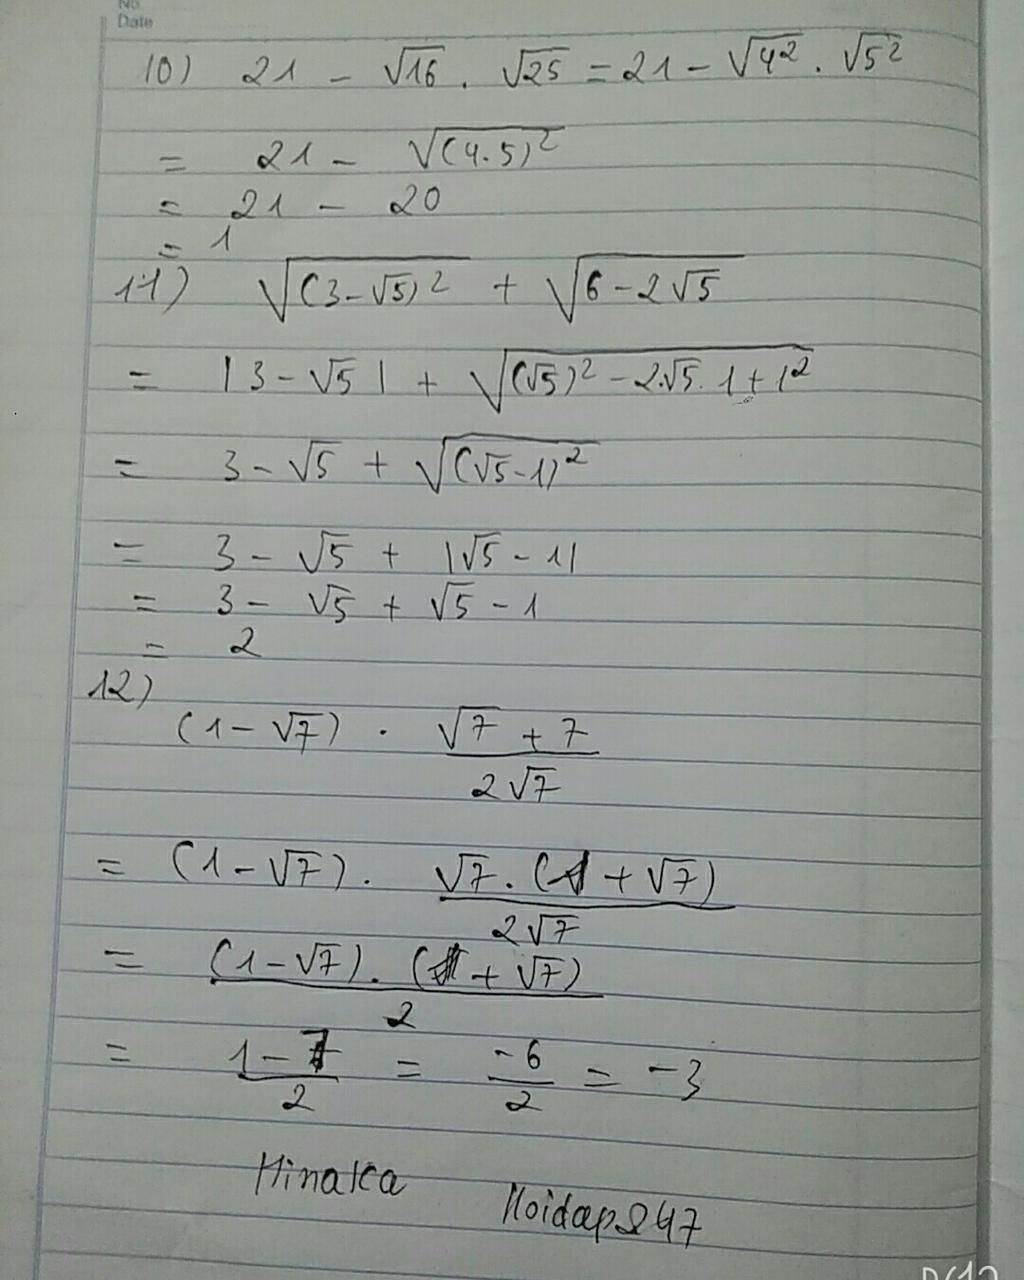 No.
Date
10) 21 - √16 . √25 = 21 - √4² . √5²
= 21 - √(4.5)²
= 21 - 20
= 1
11) √(3-√5)² + √6-2√5
= |3-√5| + √(√5)²-2.√5.1+1²
= 3-√5 + √(√5-1)²
= 3 - √5 + |√5-1|
= 3 - √5 + √5 - 1
= 2
12)
(1-√7) . √7 + 7 / 2√7
= (1-√7) . √7.(1+√7) / 2√7
= (1-√7).(1+√7) / 2
= 1-7 / 2 = -6 / 2 = -3
Hinata
Hoidap247